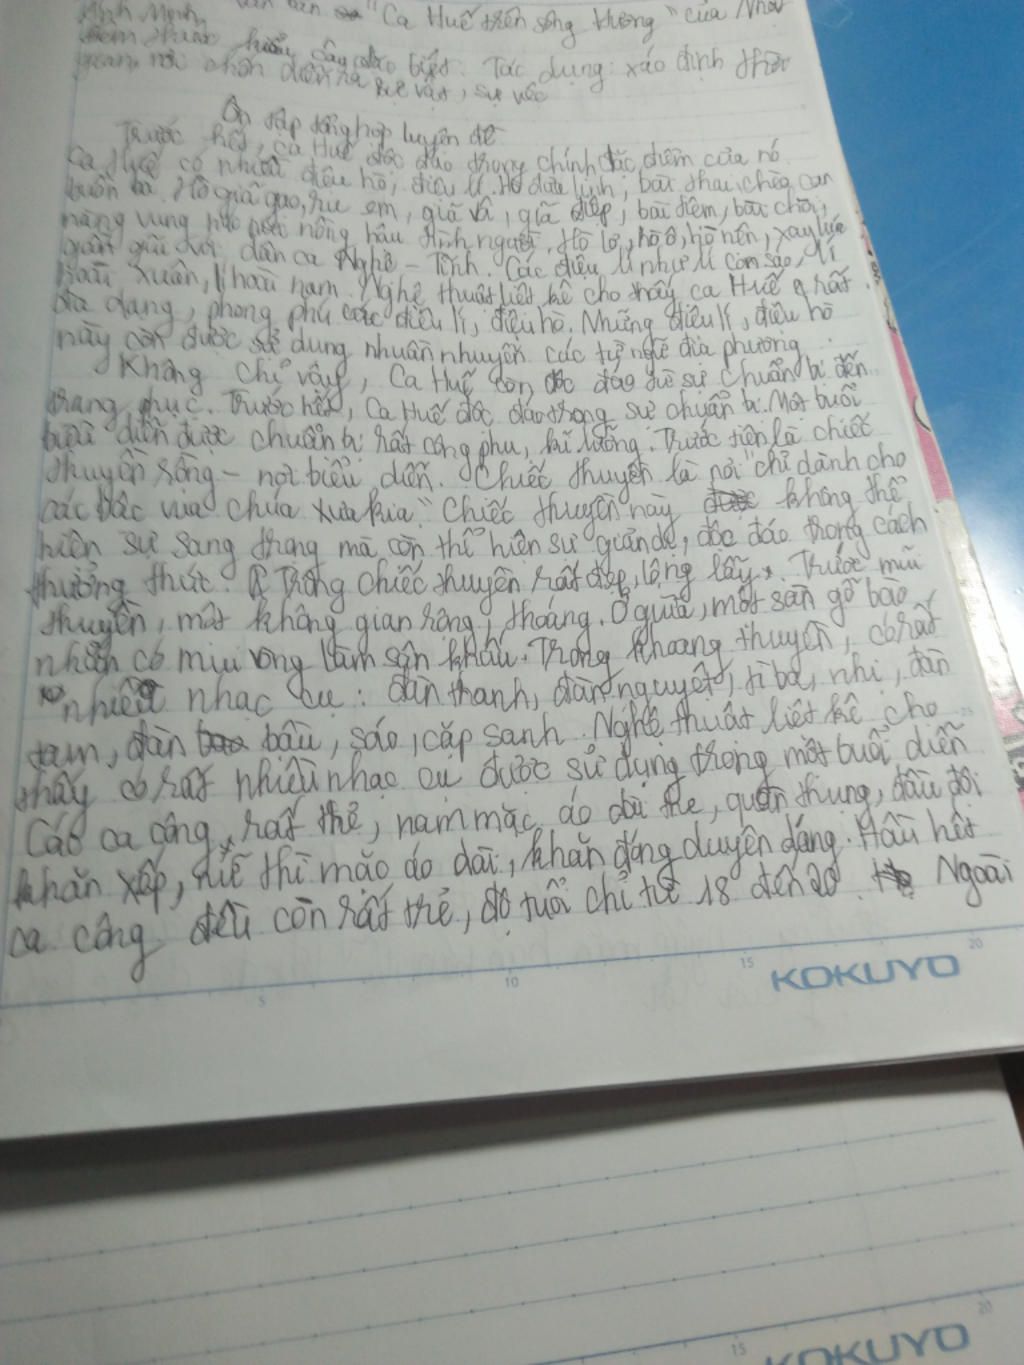 Ánh Minh, văn bản "Ca Huế trên sông Hương" của
đêm trước hiểu sâu sắc biết. Tác dụng: xác định thời
gian, nơi chốn diễn ra sự vật, sự việc
Ôn tập tổng hợp luyện đề
Trước hết, ca Huế độc đáo trong chính đặc điểm của nó.
Ca Huế có nhiều điệu hò, điệu lí. Hò đưa linh, bài thai, chèo cạn
buồn bã. Hò giã gạo, ru em, giã vôi, giã điệp, bài tiệm, bài chòi,
nàng vung náo nức nồng hậu tình người. Hò lơ, hò ô, hò nện, xay lúa
gần gũi với dân ca Nghệ - Tĩnh. Các điệu lí như lí con sáo, lí
hoài xuân, lí hoài nam. Nghệ thuật liệt kê cho thấy ca Huế rất
đa dạng, phong phú các điệu lí, điệu hò. Những điệu lí, điệu hò
này còn được sử dụng nhuần nhuyễn các từ ngữ địa phương.
Không chỉ vậy, Ca Huế còn độc đáo từ sự chuẩn bị đến
trang phục. Trước hết, Ca Huế độc đáo trong sự chuẩn bị. Một buổi
biểu diễn được chuẩn bị rất công phu, kĩ lưỡng. Trước tiên là chiếc
thuyền rồng - nơi biểu diễn. Chiếc thuyền là nơi "chỉ dành cho
các bậc vua chúa xưa kia". Chiếc thuyền này không thể
hiện sự sang trọng mà còn thể hiện sự giản dị, độc đáo trong cách
thưởng thức. Trong chiếc thuyền rất đẹp, lộng lẫy. Trước mũi
thuyền, một không gian rộng, thoáng. Ở giữa, một sàn gỗ bào
nhẵn có mui vòng làm sân khấu. Trong khoang thuyền, có rất
nhiều nhạc cụ: đàn tranh, đàn nguyệt, tì bà, nhị, đàn
tam, đàn bầu, sáo, cặp sanh. Nghệ thuật liệt kê cho
thấy có rất nhiều nhạc cụ được sử dụng trong một buổi diễn
Các ca công rất trẻ, nam mặc áo dài the, quần thụng, đầu đội
khăn xếp, nữ thì mặc áo dài, khăn đóng duyên dáng. Hầu hết
ca công đều còn rất trẻ, độ tuổi chỉ từ 18 đến 20. Ngoài
5 10 15 20
KOKUYO
15 20
KOKUYO